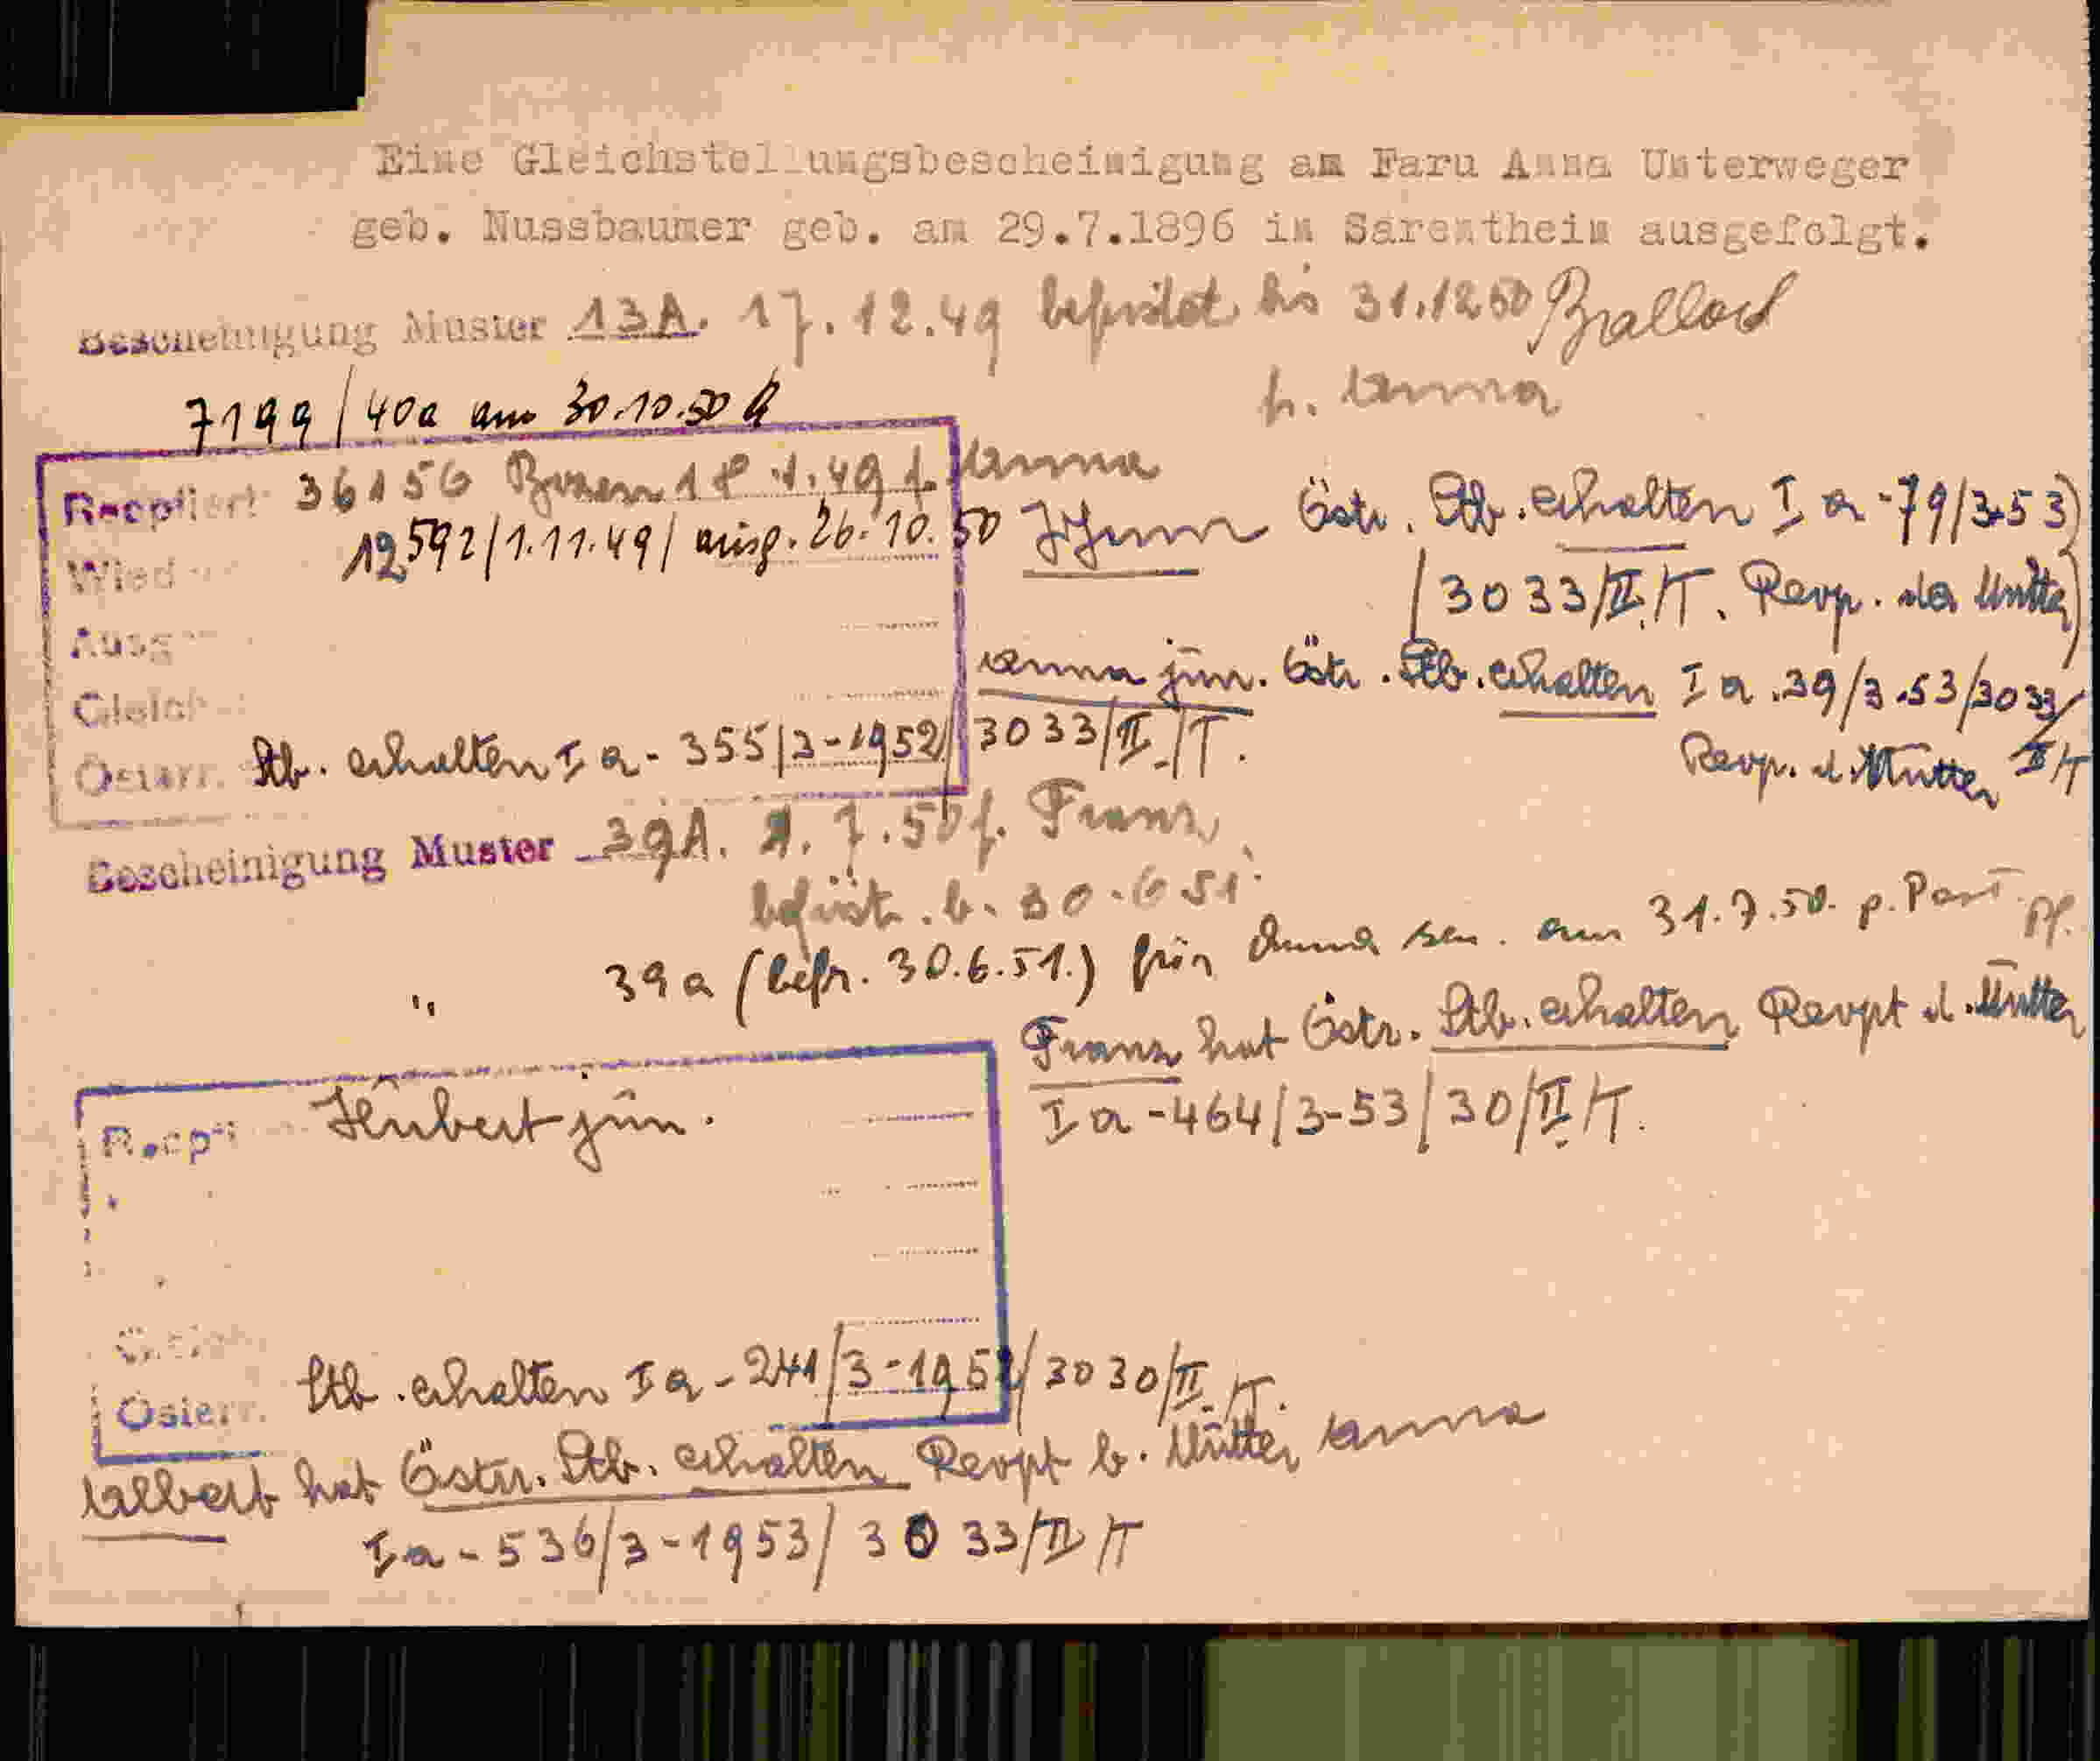 Eine Gleichstellungsbescheinigung am Faru Anna Unterweger
geb. Nussbaumer geb. am 29.7.1896 in Sarentheim ausgefolgt.
Bescheinigung Muster 13A. 17.12.49 befristet bis 31.12.50
f. Anna
7199/40a am 30.10.50
Reoptiert 36156 Bozen 1.49 f. Anna
Wied 12592/1.11.49/ ausg. 26.10.50
Östr. Stb. erhalten I a-79/3-53)
/3033/II/T. Reop. der Mutter)
Ausg
Anna jun. Östr. Stb. erhalten I a.39/3.53/3033/
Gleich
Reop. d. Mutter II/T
Österr. Stb. erhalten I a-355/3-1952/3033/II/T.
Bescheinigung Muster 39A. 1.7.50 f. Franz
befrist. b. 30.6.51.
" 39a (befr. 30.6.51.) für Anna sen. am 31.7.50. p. Post
Franz hat Östr. Stb. erhalten Reopt d. Mutter
I a-464/3-53/30/II/T.
Reopti Hubert jun.
Gleich
Österr. Stb. erhalten I a-241/3-1952/3030/II/T.
Albert hat Östr. Stb. erhalten Reopt b. Mutter Anna
I a-536/3-1953/3033/II/T